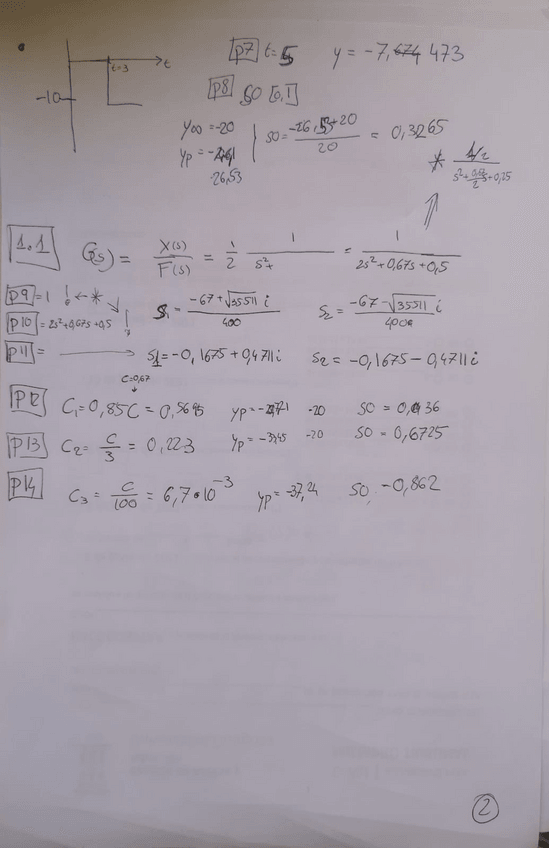 t=3 t
-10
p7 t=5 y = -7,473
p8 SO [0,1]
y∞ = -20
yp =
-26,53
SO = -26,53+20 / 20 = 0,3265
* 1/2 / s²+ 0,67/2 s+0,25
1.1 G(s) = X(s)/F(s) = 1/2 1/s²+ = 1/2s²+0,67s+0,5
p9 = 1 ! ←*
p10 = 2s²+0,67s+0,5 !
S1 = -67+√35511 i / 400 S2 = -67-√35511 i / 400
p11 = → S1 = -0,1675+0,4711i S2 = -0,1675-0,4711i
C=0,67
p12 C1 = 0,85C = 0,5695 yp = -20 SO =
p13 C2 = C/3 = 0,223 yp = -20 SO = 0,6725
p14 C3 = C/100 = 6,7•10⁻³ yp = -37,24 SO -0,862
2